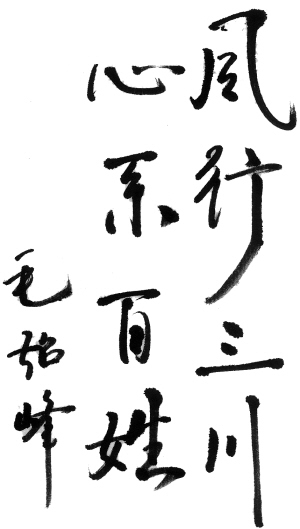 风行三川
心系百姓
毛韶峰